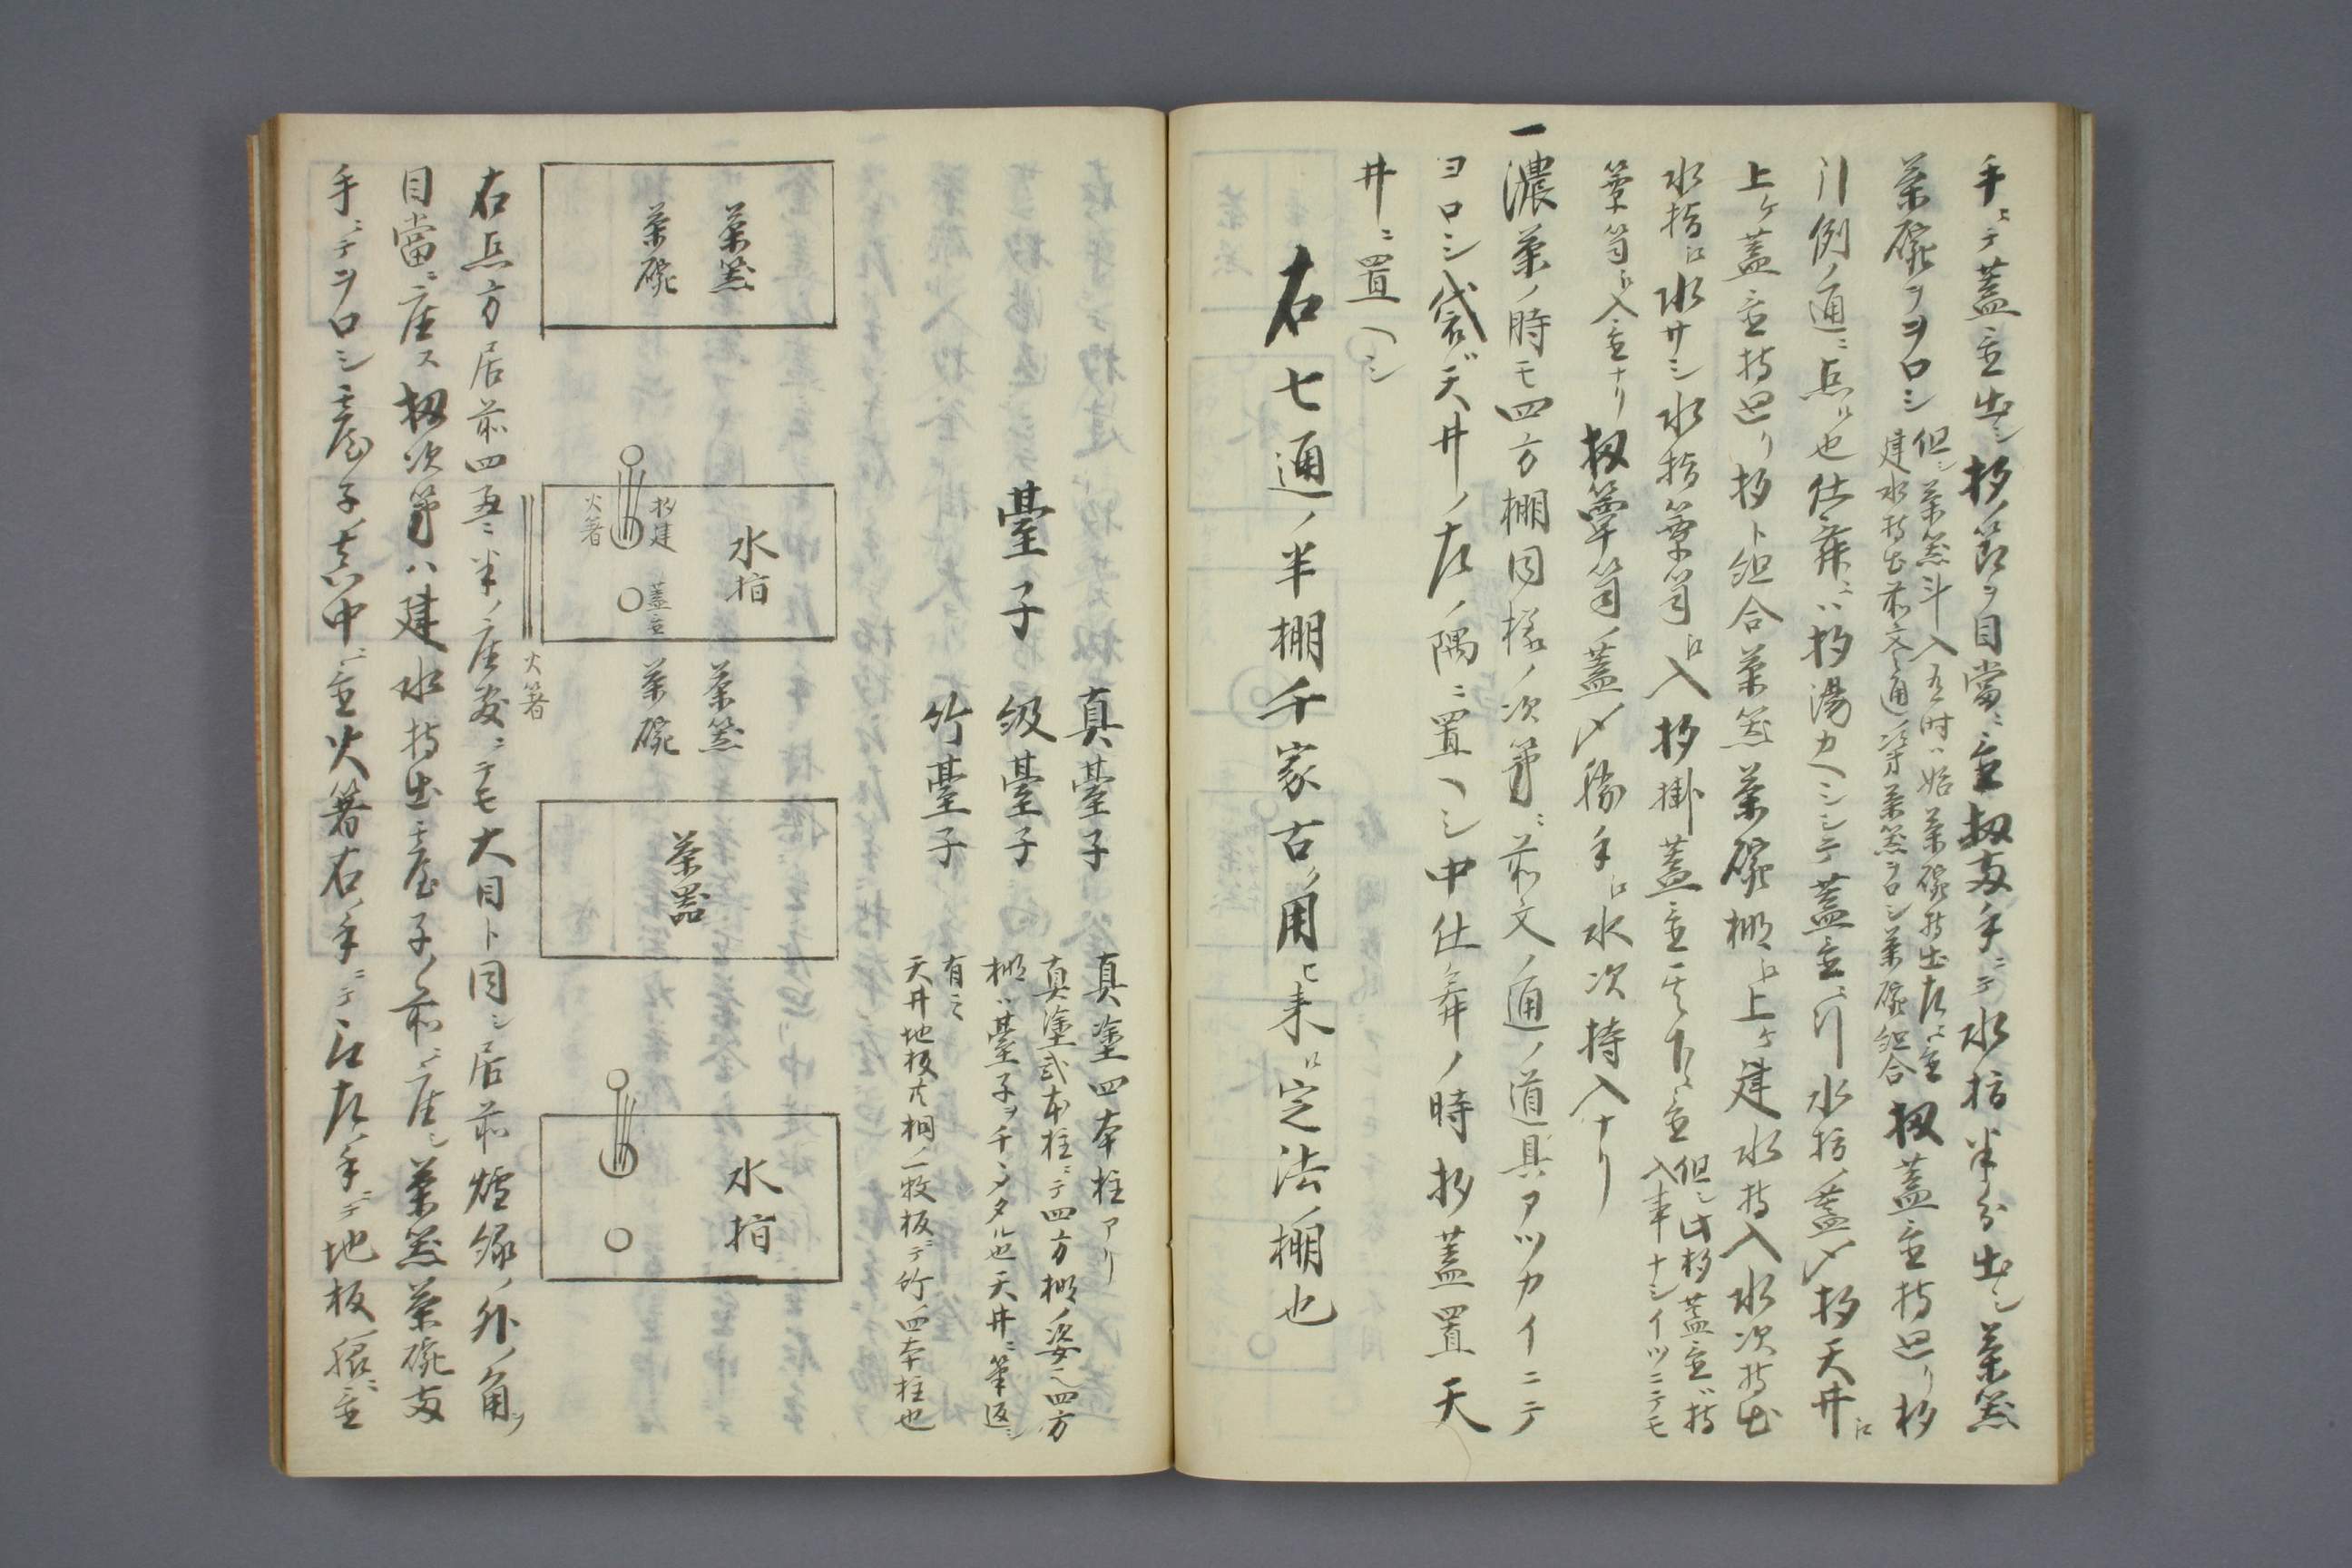 手ニテ蓋置出シ杓ノ節ヲ目當ニ置扨両手ニテ水指半分出シ茶器
茶碗ヲヲロシ
但シ茶器斗入有時ハ始茶碗持出左ニ置
建水持出前文之通ニ茶器ヲロシ茶碗組合
扨蓋置持廻リ杓
引例ノ通ニ点ル也仕舞ニハ杓湯カヘシシテ蓋置ニ引水指ノ蓋〆杓天井江
上ケ蓋置持廻リ杓ト組合茶器茶碗棚江上ケ建水持入水次持出
水指江水サシ水指箪笥江入杓掛蓋置其下ニ置
但シ此杓蓋置ハ持
入事ナシイツニテモ
箪笥ニ入置ナリ扨箪笥ノ蓋〆勝手江水次持入ナリ
一濃茶ノ時モ四方棚同様ノ次第ニ前文ノ通ノ道具アツカイニテ
ヨロシ袋ハ天井ノ左ノ隅ニ置ヘシ中仕舞ノ時杓蓋置天
井ニ置ヘシ
右七通ノ半棚千家古ゟ用ヒ来ル定法ノ棚也
臺子
真臺子
真塗四本柱アリ
及臺子
真塗弐本柱ニテ四方棚ノ姿也四方
棚ハ臺子ヲチヽメタル也天井ニ筆返シ
有之
竹臺子
天井地板共桐ノ一枚板ニテ竹ノ四本柱也
茶器
茶碗
水指
杓建
火箸
蓋置
火箸
茶器
茶碗
茶器
水指
右点方居前四畳半ノ座敷ニテモ大目ト同シ居前炉縁ノ外ノ角ヲ
目當ニ座ス扨次第ハ建水持出臺子ノ前ニ座シ茶器茶碗両
手ニテヲロシ臺子ノ真中ニ置火箸右ノ手ニテ取左ノ手ニテ地板ノ脇ニ置